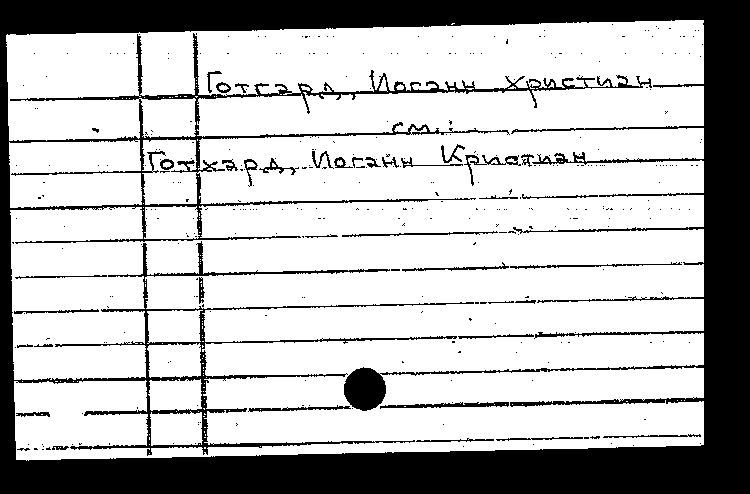 Готгард, Иоганн Христиан
см.:
Готхард, Иоганн Кристиан